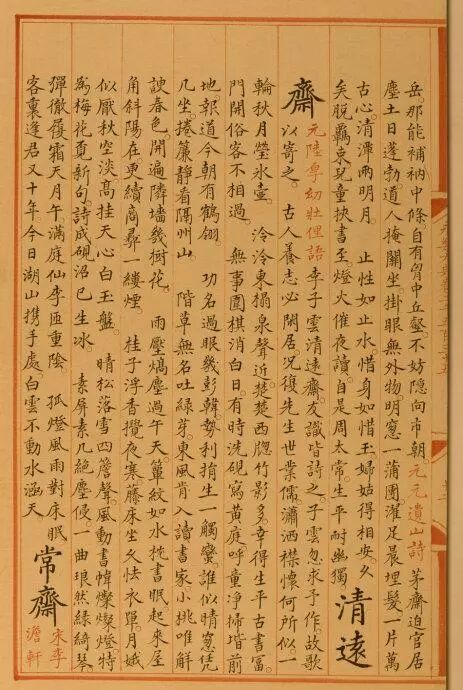 岳。那能補衲中條。自有胷中丘壑。不妨隱向市朝。元元遺山詩 茅齋迫官居
塵土日蓬勃。道人掩關坐。掛眼無外物。明窓一蒲團。濯足晨理髮。一片萬
古心。清潭兩明月。 止性如止水。惜身如惜玉。婦姑得相安。久
矣脫羈束。兒童挾書至。燈火催夜讀。自是周太常。生平耐幽獨
清遠
齋
元陸學幼壯俚語 李子雲清遠齋友識皆詩之。子雲忽求予作故歌
以寄之 古人養志必閑居。況復先生世業儒。瀟洒襟懷何所似。一
輪秋月瑩氷壺。 泠泠東搨泉聲近。楚楚西牕竹影多。幸得生平古書富。
門開俗客不相過。 無事圍棋消白日。有時洗硯寫黃庭。呼童淨掃堦前
地。報道今朝有鶴翎。 功名過眼幾彭韓。勢利指生一觸蠻。誰似晴窓凭
几坐。捲簾靜看隔州山。 階草無名吐綠芽。東風肯入讀書家。小桃唯解
諛春色。開遍隣墻幾樹花。 雨壓塵過午天。簟紋如水撓書眠。起來屋
角斜陽在。更續商尋一縷煙。 桂子浮香攪夜寒。藤床坐久怯衣單。月娥
似厭秋空淡。高挂天心白玉盤。 晴松落雪四簷聲。風動書幃爍爍燈。特
為梅花覓新句。詩成硯沼已生冰。 素屏素几絕塵侵。一曲琅然綠綺琴。
彈徹履霜天月午。滿庭仙李匝重陰 孤燈風雨對床眠
客裏逢君又十年。今日湖山携手處。白雲不動水涵天
常齋
宋李
澹軒